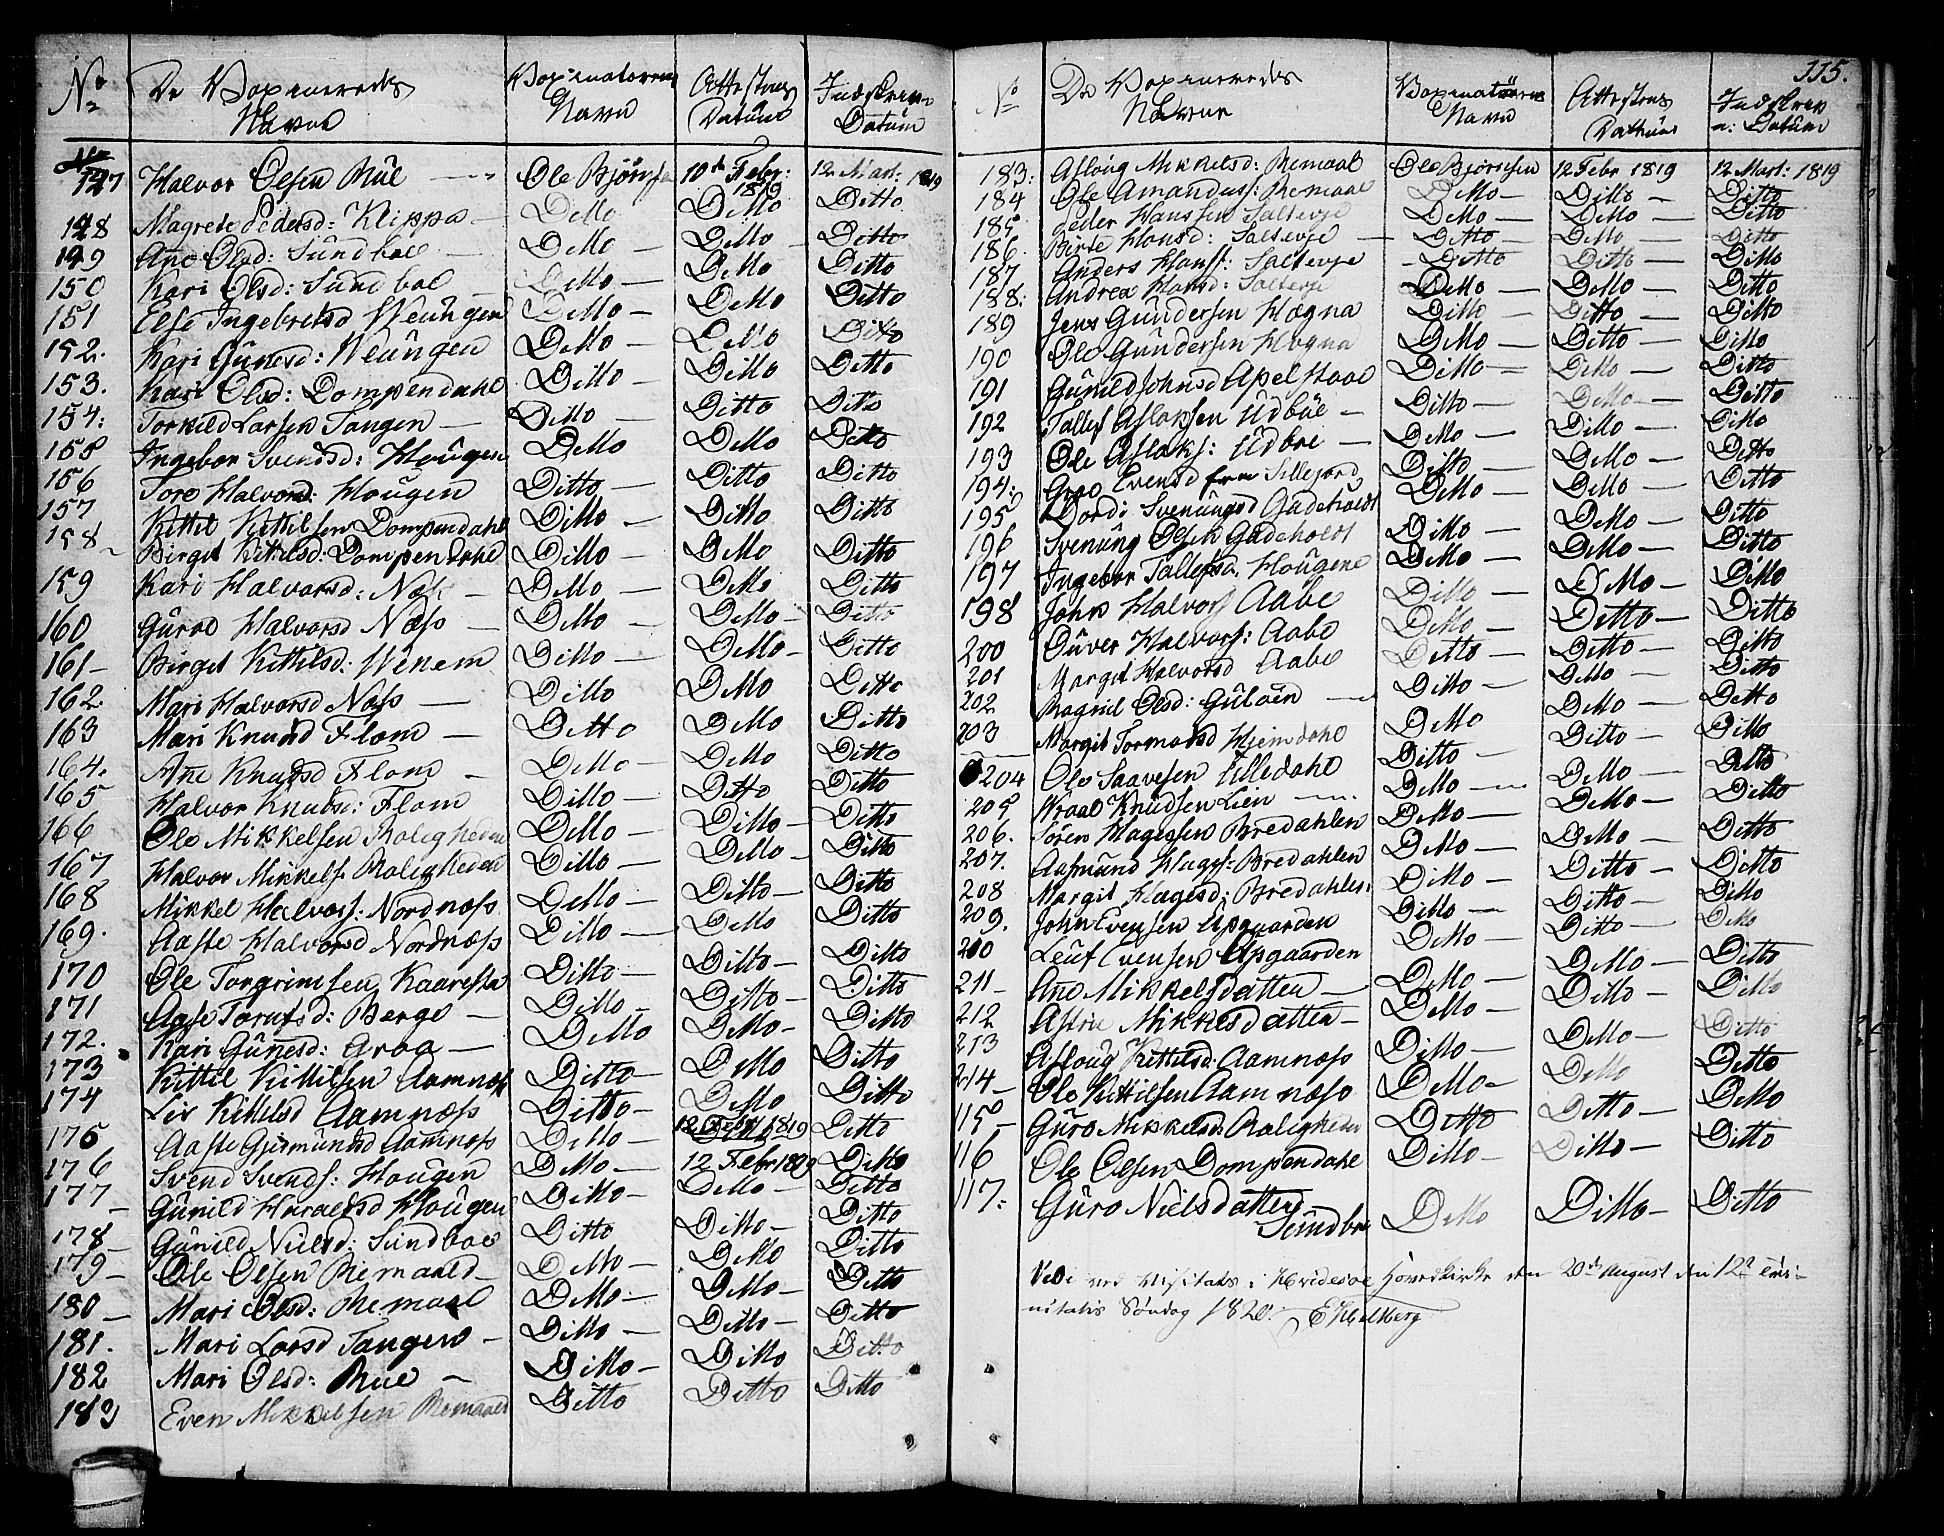 No De Vaxinerede Navne Vaxinateurens Navn Attestens Datum Indskrivn: Datum
147 Halvor Olsen Rue Ole Bjørnsen 10de Febr: 1819 12 Mart: 1819
148 Magrete Pedersd: Klippa Ditto Ditto Ditto
149 Ane Olsd: Sundboe Ditto Ditto Ditto
150 Kari Olsd: Sundboe Ditto Ditto Ditto
151 Else Ingebretsd Weungen Ditto Ditto Ditto
152. Kari Gunesd: Weungen Ditto Ditto Ditto
153. Kari Olsd: Dompendahl Ditto Ditto Ditto
154: Torkild Larsen Tangen Ditto Ditto Ditto
155 Ingebor Svendsd: Hougen Ditto Ditto Ditto
156 Tore Halvord: Hougen Ditto Ditto Ditto
157 Kittil Kittilsen Dompendahl Ditto Ditto Ditto
158 Birget Kittilsd: Dompendahl Ditto Ditto Ditto
159 Kari Halvorsd: Næss Ditto Ditto Ditto
160 Guroe Halvorsd Næss Ditto Ditto Ditto
161 Birget Kittilsd: Wenem Ditto Ditto Ditto
162. Mari Halvorsd Næss Ditto Ditto Ditto
163 Mari Knudsd Flom Ditto Ditto Ditto
164. Ane Knudsd Flom Ditto Ditto Ditto
165 Halvor Knuds: Flom Ditto Ditto Ditto
166 Ole Mikkelsen Roligheden Ditto Ditto Ditto
167 Halvor Mikkels. Roligheden Ditto Ditto Ditto
168 Mikkel Halvors: Nordnæss Ditto Ditto Ditto
169. Aaste Halvorsd Nordnæss Ditto Ditto Ditto
170 Ole Torgrimsen Kaaresta Ditto Ditto Ditto
171 Aase Torufsd: Berge Ditto Ditto Ditto
172. Kari Gunesd: Ditto Ditto Ditto
173 Kittil Kittilsen Aamnæss Ditto Ditto Ditto
174 Liv Kittilsd Aamnæss Ditto Ditto Ditto
175 Aaste Gjermundsd Aamnæss Ditto 12 Febr 1819 Ditto
176 Svend Svends: Hougen Ditto 12 Febr 1819 Ditto
177 Gunild Haraldsd Hougen Ditto Ditto Ditto
178 Gunild Nielsd: Sundboe Ditto Ditto Ditto
179 Ole Olsen Remaaed Ditto Ditto Ditto
180 Mari Olsd: Remaal Ditto Ditto Ditto
181. Mari Larsd Tangen Ditto Ditto Ditto
182 Mari Olsd: Rue Ditto Ditto Ditto
183 Even Mikkelsen Remaaed Ditto Ditto Ditto
115.
No De Vaxineredes Navne Vaxinateurens Navn Attestens Dathum Indskriv n: Datum
183: Aslaug Mikkelsd: Remaal Ole Bjørnsen 12 Febr 1819 12 Mart: 1819
184 Ole Amandass: Remaal Ditto Ditto Ditto
185 Peder Hanssen Saltevje Ditto Ditto Ditto
186. Birte Hansd: Saltevje Ditto Ditto Ditto
187 Anders Hanss: Saltevje Ditto Ditto Ditto
188: Andrea Hansd: Saltevje Ditto Ditto Ditto
189 Jens Gundersen Høgna Ditto Ditto Ditto
190 Ole Gundersen Høgna Ditto Ditto Ditto
191 Gunild Johnsd Apelstaae Ditto Ditto Ditto
192 Tallef Aslaksen Udbøe Ditto Ditto Ditto
193 Ole Aslaks: Udbøe Ditto Ditto Ditto
194: Groe Evensd fra Sillejord Ditto Ditto Ditto
195 Dordi Svenungsd Gadeholdt Ditto Ditto Ditto
196 Svenung Olsen Gadeholdt Ditto Ditto Ditto
197 Ingebor Tallefsd. Hougene Ditto Ditto Ditto
198 John Halvors Aabe Ditto Ditto Ditto
200 Ouver Halvors: Aabe Ditto Ditto Ditto
201 Margit Halvorsd Aabe Ditto Ditto Ditto
202 Magnil Olsd: Ditto Ditto Ditto
203 Margit Tormodsd Hjemdahl Ditto Ditto Ditto
204 Ole Saavesen Lilledahl Ditto Ditto Ditto
205 Wraal Knudsen Lien Ditto Ditto Ditto
206. Søren Hagesen Bredahlen Ditto Ditto Ditto
207. Aasmund Hages: Bredahlen Ditto Ditto Ditto
208 Margit Hagesd: Bredahlen Ditto Ditto Ditto
209. John Evensen Opgaarden Ditto Ditto Ditto
210 Leuf Evensen Opgaarden Ditto Ditto Ditto
211 Ane Mikkelsdatten Ditto Ditto Ditto
212 Astrie Mikkelsdatten Ditto Ditto Ditto
213 Aslaug Kittilsd: Aamnæss Ditto Ditto Ditto
214 Ole Kittilsen Aamnæss Ditto Ditto Ditto
115 Guro Mikkelsd Roligheden Ditto Ditto Ditto
116 Ole Olsen Dompendahl Ditto Ditto Ditto
117: Guro Nielsdatten Sundbøe Ditto Ditto Ditto
Vidi ved Visitats i Hvideseie Hovedkirke den 20de August den 12te Tri-
nitatis Søndag 1820.